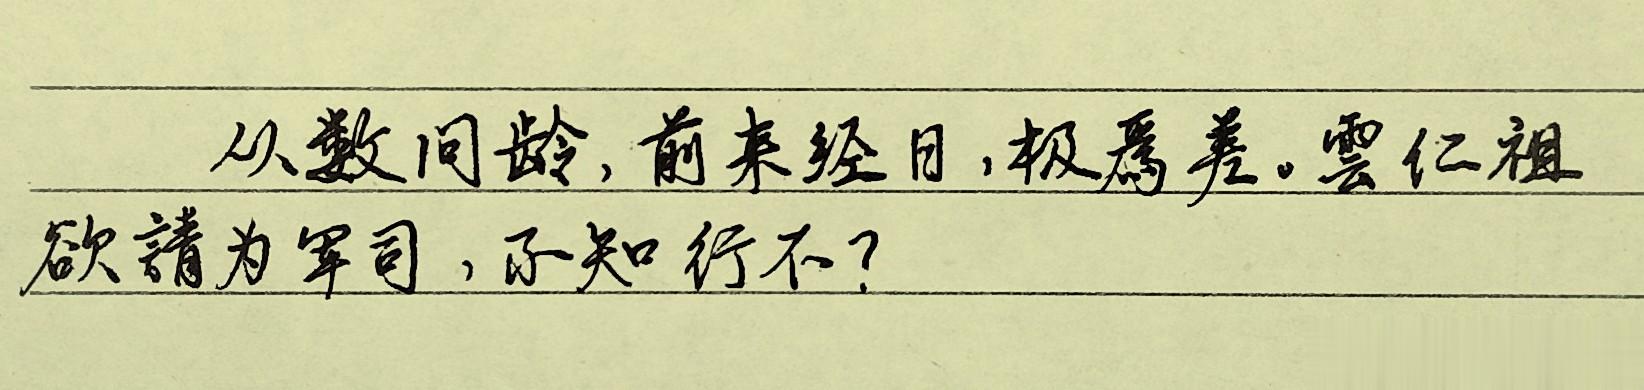 从数问龄,前来经日,极爲差。雲仁祖
欲請为军司,不知行不?